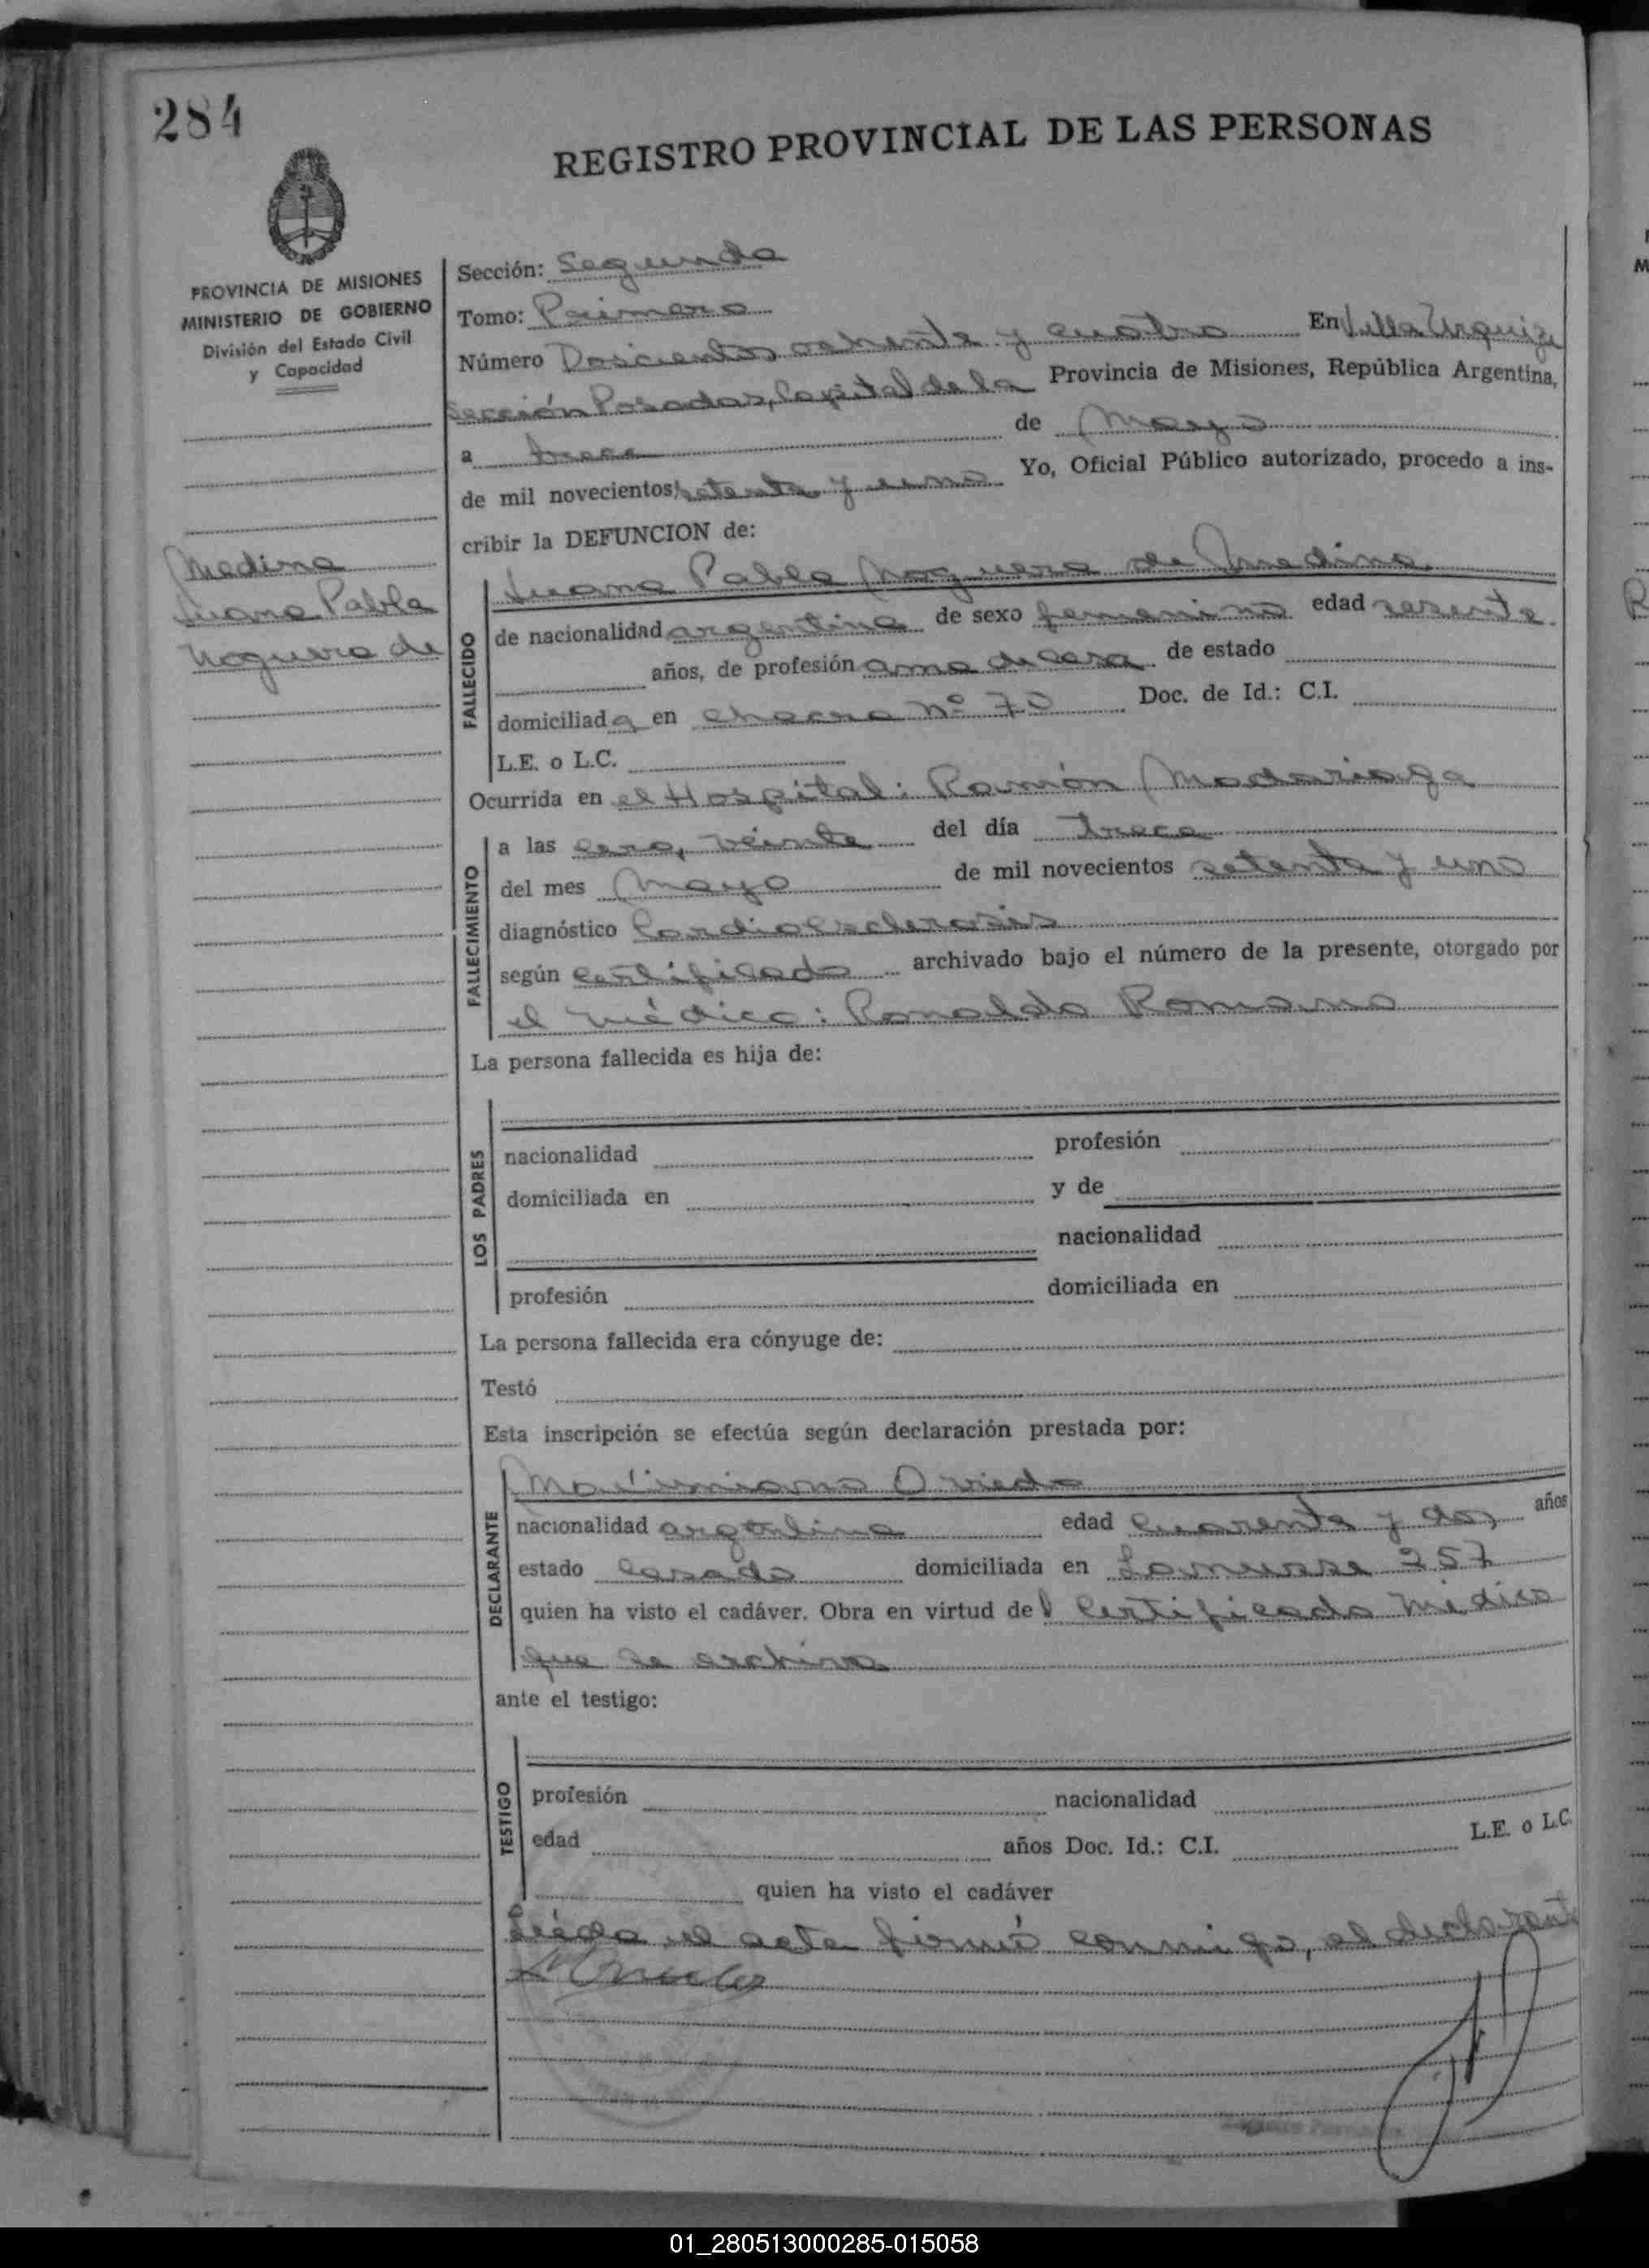 284
REGISTRO PROVINCIAL DE LAS PERSONAS
PROVINCIA DE MISIONES
MINISTERIO DE GOBIERNO
División del Estado Civil
y Capacidad
Medina
Juana Pabla
Noguera de
Sección: Segunda
Tomo: Primero
Número Doscientos ochenta y cuatro En Villa Urquiza
Sección Posadas, Capital de la Provincia de Misiones, República Argentina,
a trece de Mayo
de mil novecientos setenta y uno Yo, Oficial Público autorizado, procedo a ins-
cribir la DEFUNCION de:
FALLECIDO
Juana Pabla Noguera de Medina
de nacionalidad argentina de sexo femenino edad sesenta
años, de profesión ama de casa de estado
domiciliada en chacra Nº 70 Doc. de Id.: C.I.
L.E. o L.C.
Ocurrida en el Hospital: Ramón Madariaga
FALLECIMIENTO
a las cero, veinte del día trece
del mes Mayo de mil novecientos setenta y uno
diagnóstico Cardioesclerosis
según certificado archivado bajo el número de la presente, otorgado por
el médico: Ronaldo Romano
La persona fallecida es hija de:
LOS PADRES
nacionalidad profesión
domiciliada en y de
nacionalidad
profesión domiciliada en
La persona fallecida era cónyuge de:
Testó
Esta inscripción se efectúa según declaración prestada por:
DECLARANTE
Maximiano Oviedo
nacionalidad argentina edad cuarenta y dos años
estado casado domiciliada en Lamusse 257
quien ha visto el cadáver. Obra en virtud del Certificado Médico
que se archiva
ante el testigo:
TESTIGO
profesión nacionalidad
edad años Doc. Id.: C.I. L.E. o L.C.
quien ha visto el cadáver
Leída el acta firmó conmigo, el declarante
01_280513000285-015058